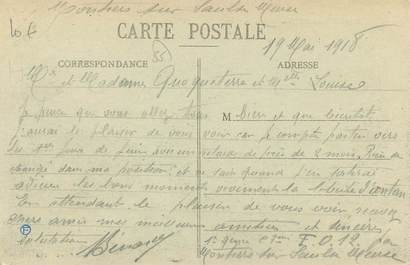 Montiers sur Saulx Meuse
10 €
CARTE POSTALE
55
19 Mai 1918
CORRESPONDANCE
ADRESSE
Mr et Madame et Melle Louise
Je pense que vous allez tous bien et que bientôt
M
j'aurai le plaisir de vous voir car je compte partir vers
les 1ers jours de juin avec un retard de près de 2 mois. Rien de
changé dans ma position et ne sais quand j'en sortirai
adieu les bons moments vivement la d'antan
En attendant le plaisir de vous voir recevez
chers amis mes meilleures amitiés et sincères
salutations
Bénard
F.O.12 par
Montiers sur Saulx Meuse